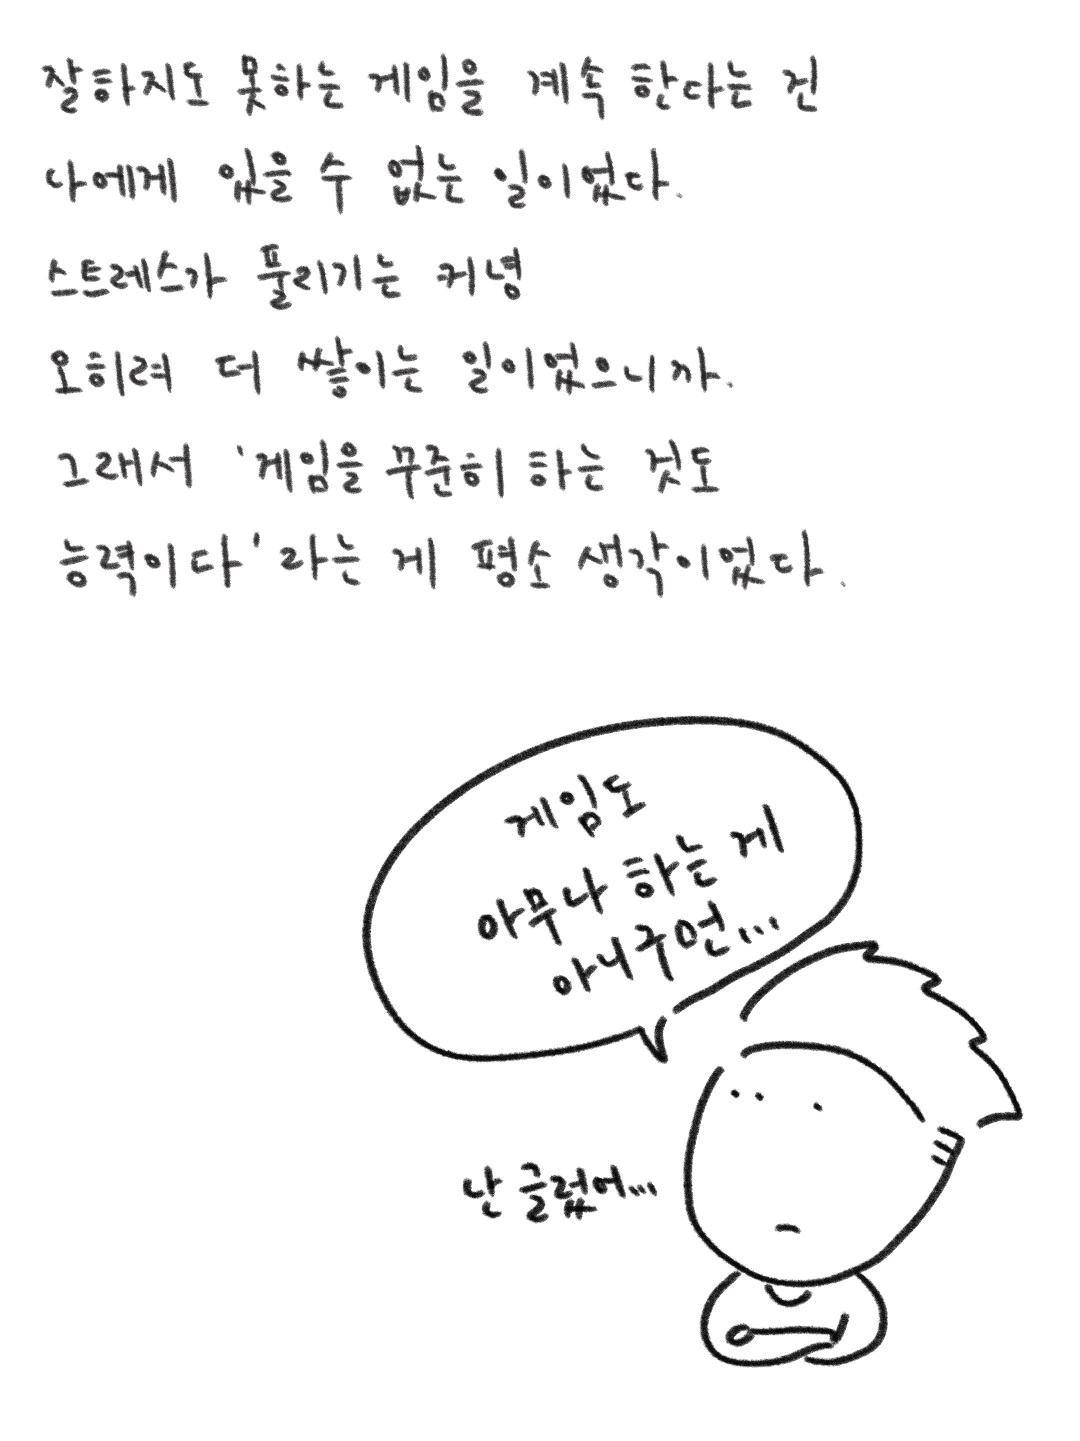 잘하지도 못하는 게임을 계속 한다는 건
나에게 있을 수 없는 일이었다.
스트레스가 풀리기는 커녕
오히려 더 쌓이는 일이었으니까.
그래서 '게임을 꾸준히 하는 것도
능력이다'라는 게 평소 생각이었다.
게임도
아무나 하는 게
아니구먼...
난 글렀어...